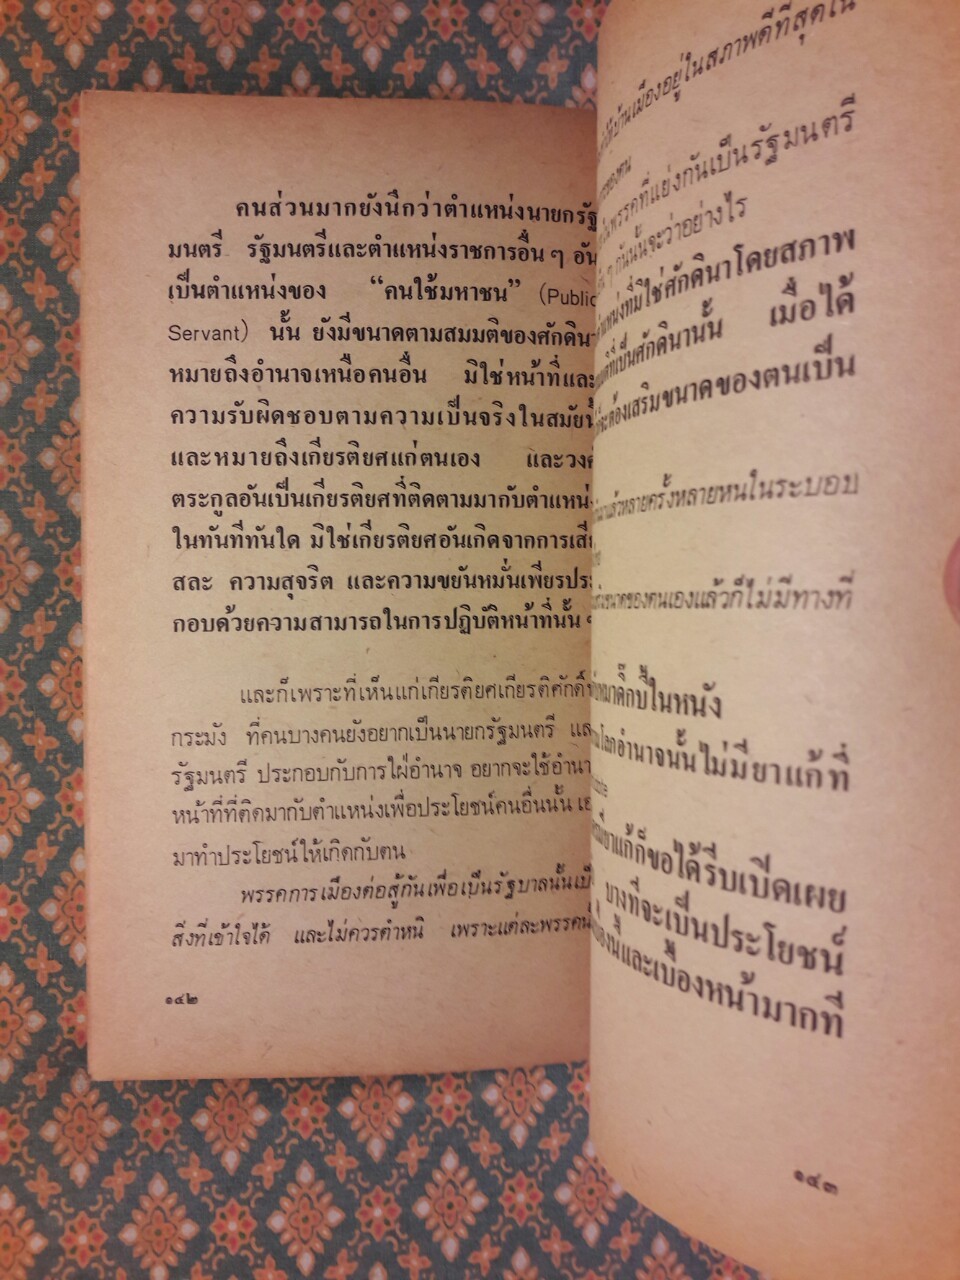 คนส่วนมากยังนึกว่าตำแหน่งนายกรัฐ
มนตรี รัฐมนตรีและตำแหน่งราชการอื่น ๆ อัน
เป็นตำแหน่งของ “คนใช้มหาชน” (Public
Servant) นั้น ยังมีขนาดตามสมมติของศักดินา
หมายถึงอำนาจเหนือคนอื่น มิใช่หน้าที่และ
ความรับผิดชอบตามความเป็นจริงในสมัยนี้
และหมายถึงเกียรติยศแก่ตนเอง และวงศ์
ตระกูลอันเป็นเกียรติยศที่ติดตามมากับตำแหน่ง
ในทันทีทันใด มิใช่เกียรติยศอันเกิดจากการเสีย
สละ ความสุจริต และความขยันหมั่นเพียรประ
กอบด้วยความสามารถในการปฏิบัติหน้าที่นั้น ๆ
และก็เพราะที่เห็นแก่เกียรติยศเกียรติศักดิ์
กระมัง ที่คนบางคนยังอยากเป็นนายกรัฐมนตรี และ
รัฐมนตรี ประกอบกับการใฝ่อำนาจ อยากจะใช้อำนา
หน้าที่ที่ติดมากับตำแหน่งเพื่อประโยชน์คนอื่นนั้น เอ
มาทำประโยชน์ให้เกิดกับตน
พรรคการเมืองต่อสู้กันเพื่อเป็นรัฐบาลนั้นเป็
สิ่งที่เข้าใจได้ และไม่ควรตำหนิ เพราะแต่ละพรรคนั้
๑๔๒
บ้านเมืองอยู่ในสภาพดีที่สุดใน
ของตน
พรรคที่แย่งกันเป็นรัฐมนตรี
ๆ กันนั้นจะว่าอย่างไร
แหน่งที่มิใช่ศักดินาโดยสภาพ
ที่เป็นศักดินานั้น เมื่อได้
จะต้องเสริมขนาดของตนเป็น
มาแล้วหลายครั้งหลายหนในระบอบ
ขนาดของตนเองแล้วก็ไม่มีทางที่
หมาดิ๊กบี้ในหนัง
โลกอำนาจนั้นไม่มียาแก้ที่
ยาแก้ก็ขอได้รีบเปิดเผย
บางทีจะเป็นประโยชน์
และเบื้องหน้ามากที่
๑๔๓